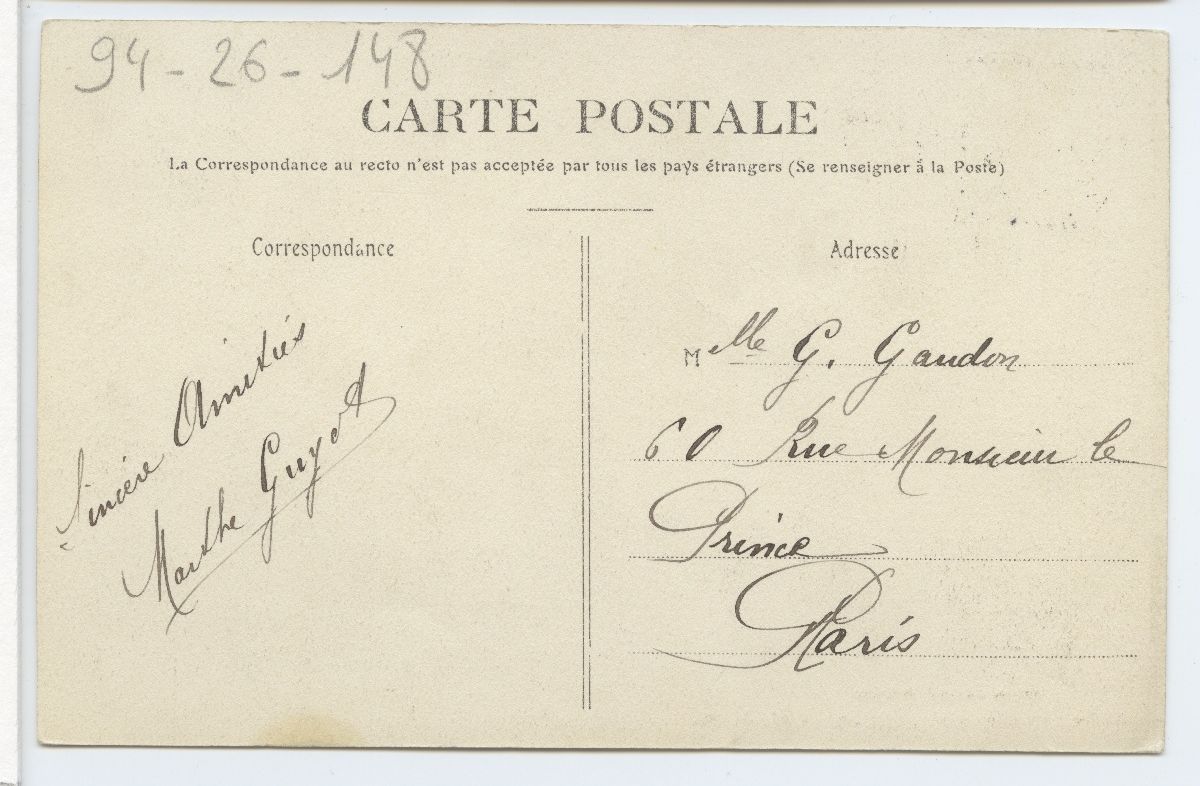 94-26-148
CARTE POSTALE
La Correspondance au recto n'est pas acceptée par tous les pays étrangers (Se renseigner à la Poste)
Correspondance
Sincère Amitiés
Marthe Guyot
Adresse
Melle G. Gaudon
60 Rue Monsieur le
Prince
Paris